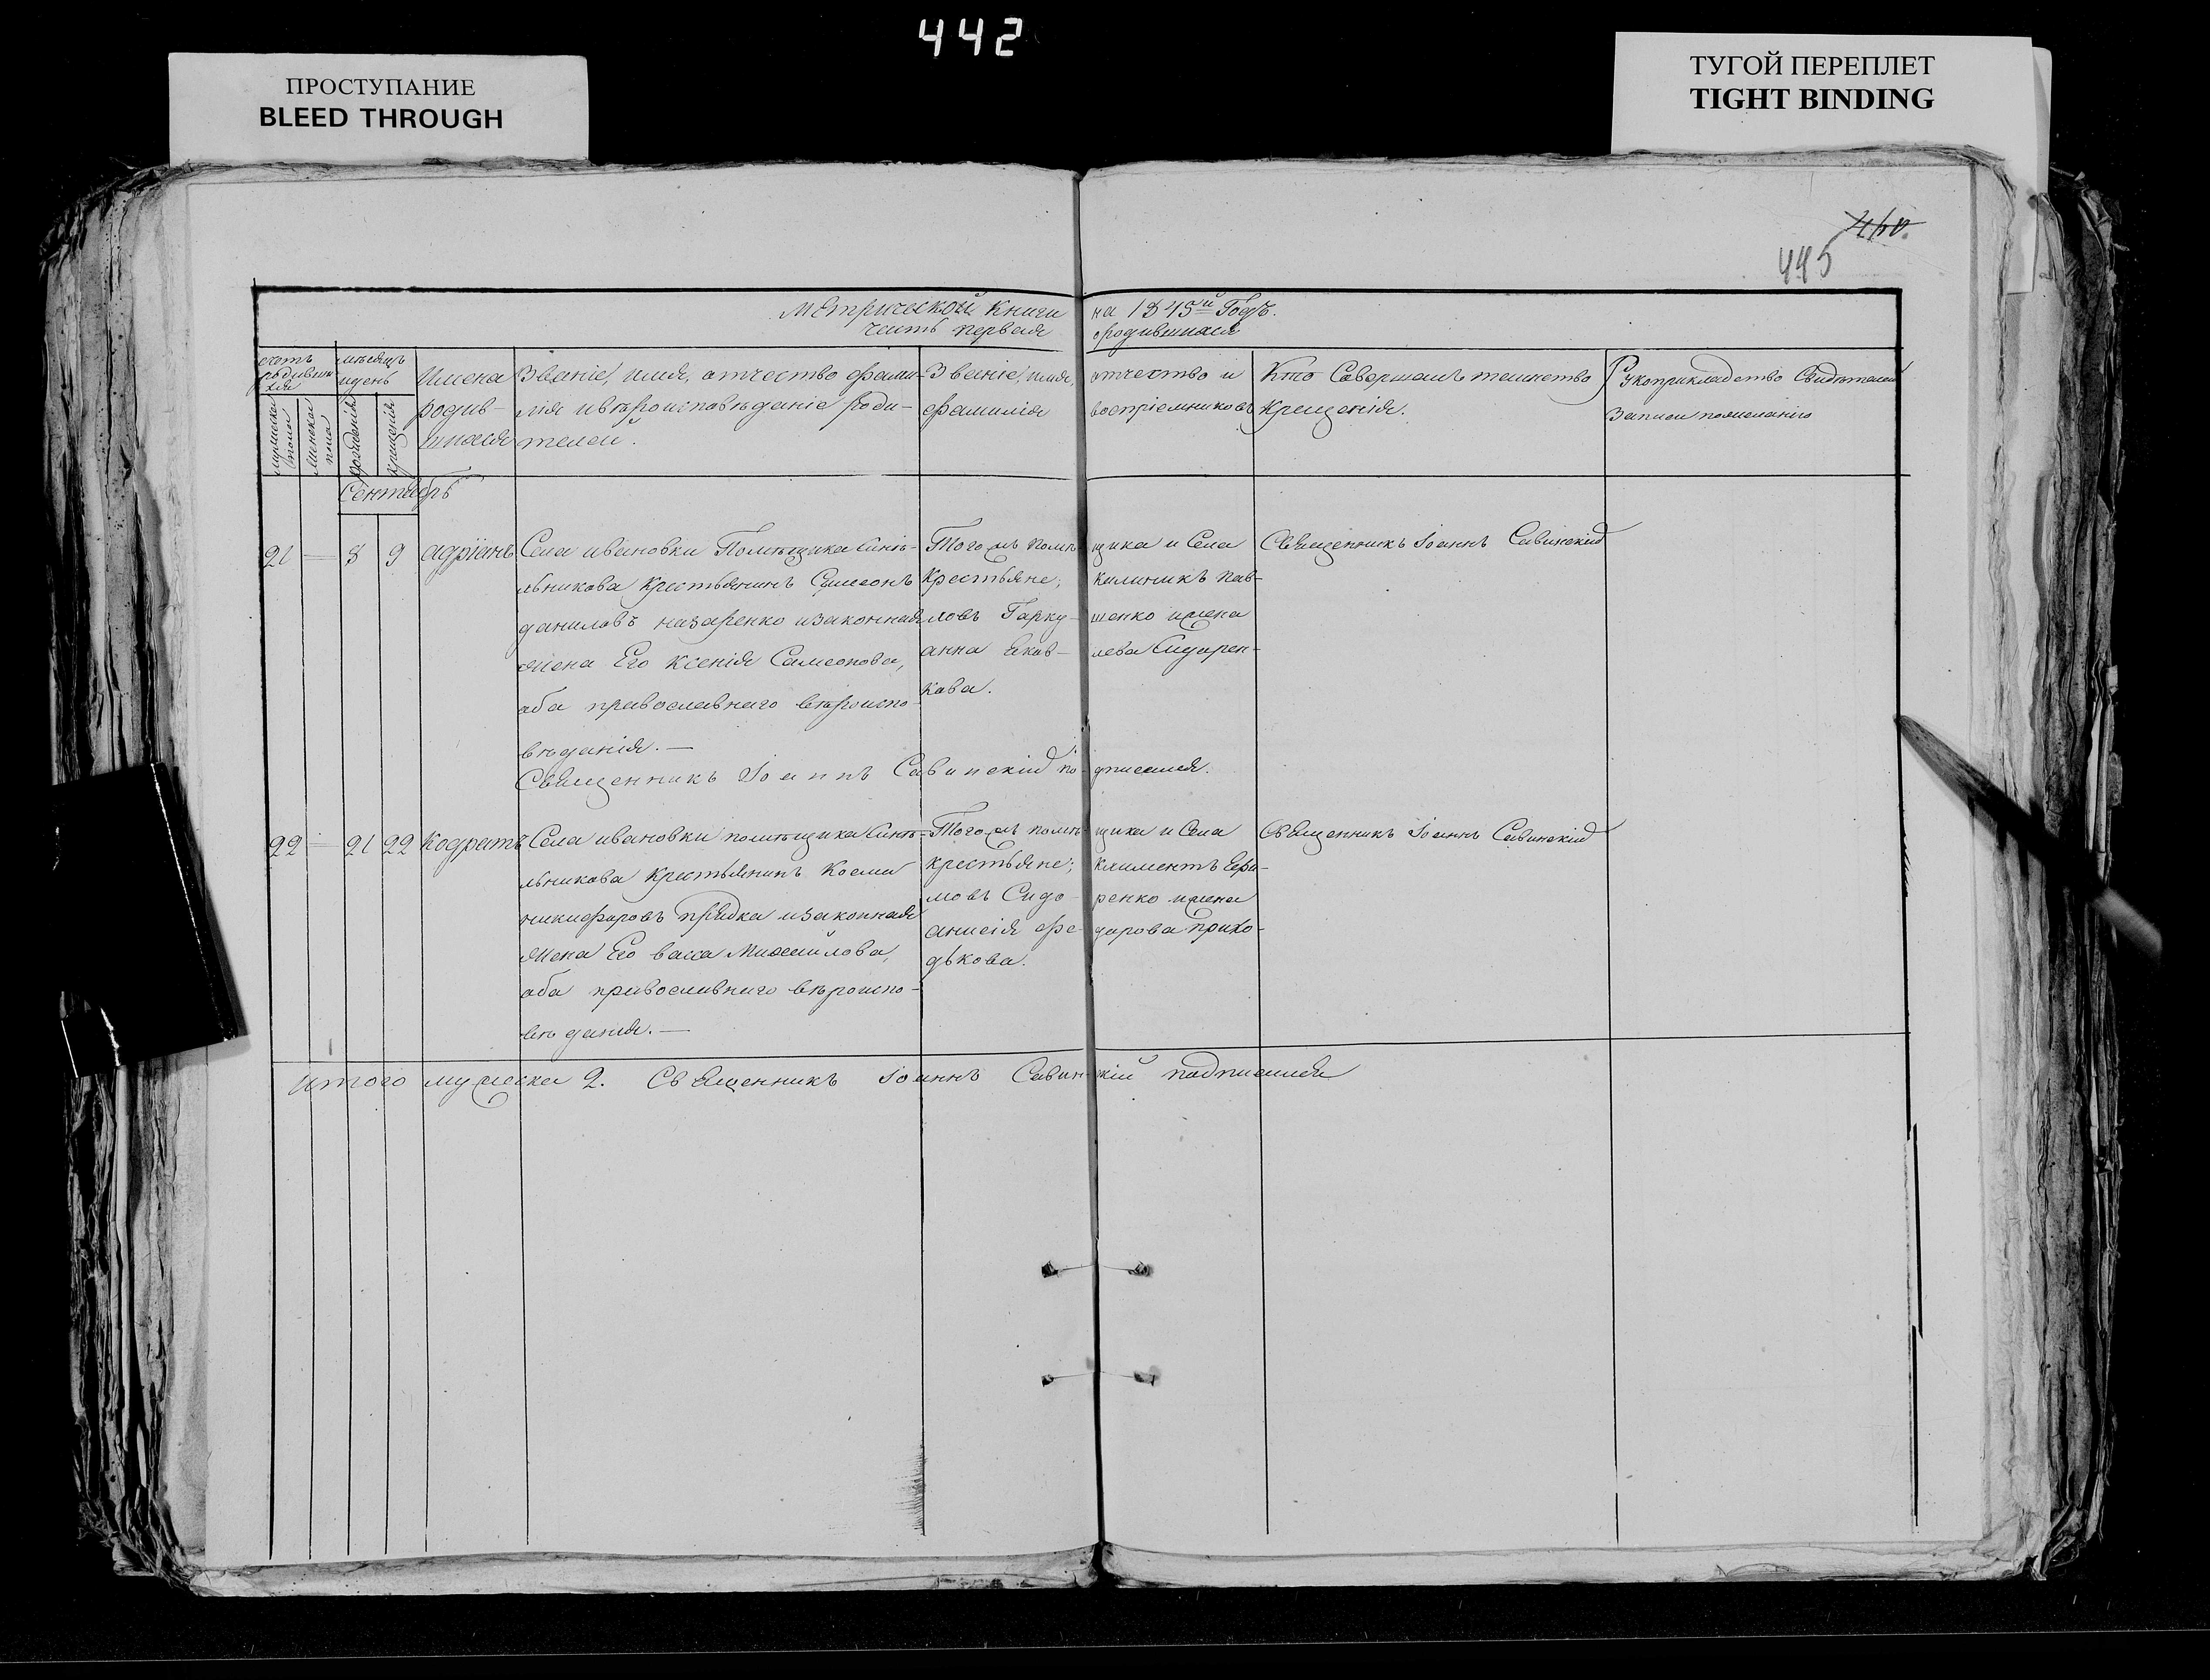 442
ПРОСТУПАНИЕ
BLEED THROUGH
ТУГОЙ ПЕРЕПЛЕТ
TIGHT BINDING
445
Метрической книги на 1845й Годъ.
часть первая о родившихся
счетъ родившихся
мужеска пола
женска пола
мѣсяцъ и день
рожденія
крещенія
Имена родив-
шихся
Званіе, имя, отчество фами-
лія и вѣроисповѣданіе роди-
телей.
Званіе, имя, отчество и
фамилія воспріемниковъ
Кто Совершалъ таинство
крещенія.
Рукоприкладство Свидѣтелей
Записи по желанію
Сентябрь
21 — 8 9 Адріанъ
Села ивановки Помѣщика Синѣ-
льникова Крестьянинъ Симеонъ
даниловъ назаренко и законная
жена Его Ксенія Самсонова,
оба православнаго вѣроиспо-
вѣданія. —
Того жъ помѣщика и Села
Крестьяне; калиникъ пав-
ловъ Гаркушенко и жена
анна Яковлева Сидорен-
кова.
Священникъ Іоаннъ Савинскій
Священникъ Іоаннъ Савинскій подписался.
22 — 21 22 Кодратъ
Села ивановки помѣщика Синѣ-
льникова Крестьянинъ Косма
никифоровъ Прядка и законная
жена Его васса Михайлова,
оба православнаго вѣроиспо-
вѣданія. —
Того жъ помѣщика и Села
крестьяне; климентъ Ефи-
мовъ Сидоренко и жена
анисія Федорова Прихо-
дькова.
Священникъ Іоаннъ Савинскій
итого мужеска 2. Священникъ Іоаннъ Савинскій подписался